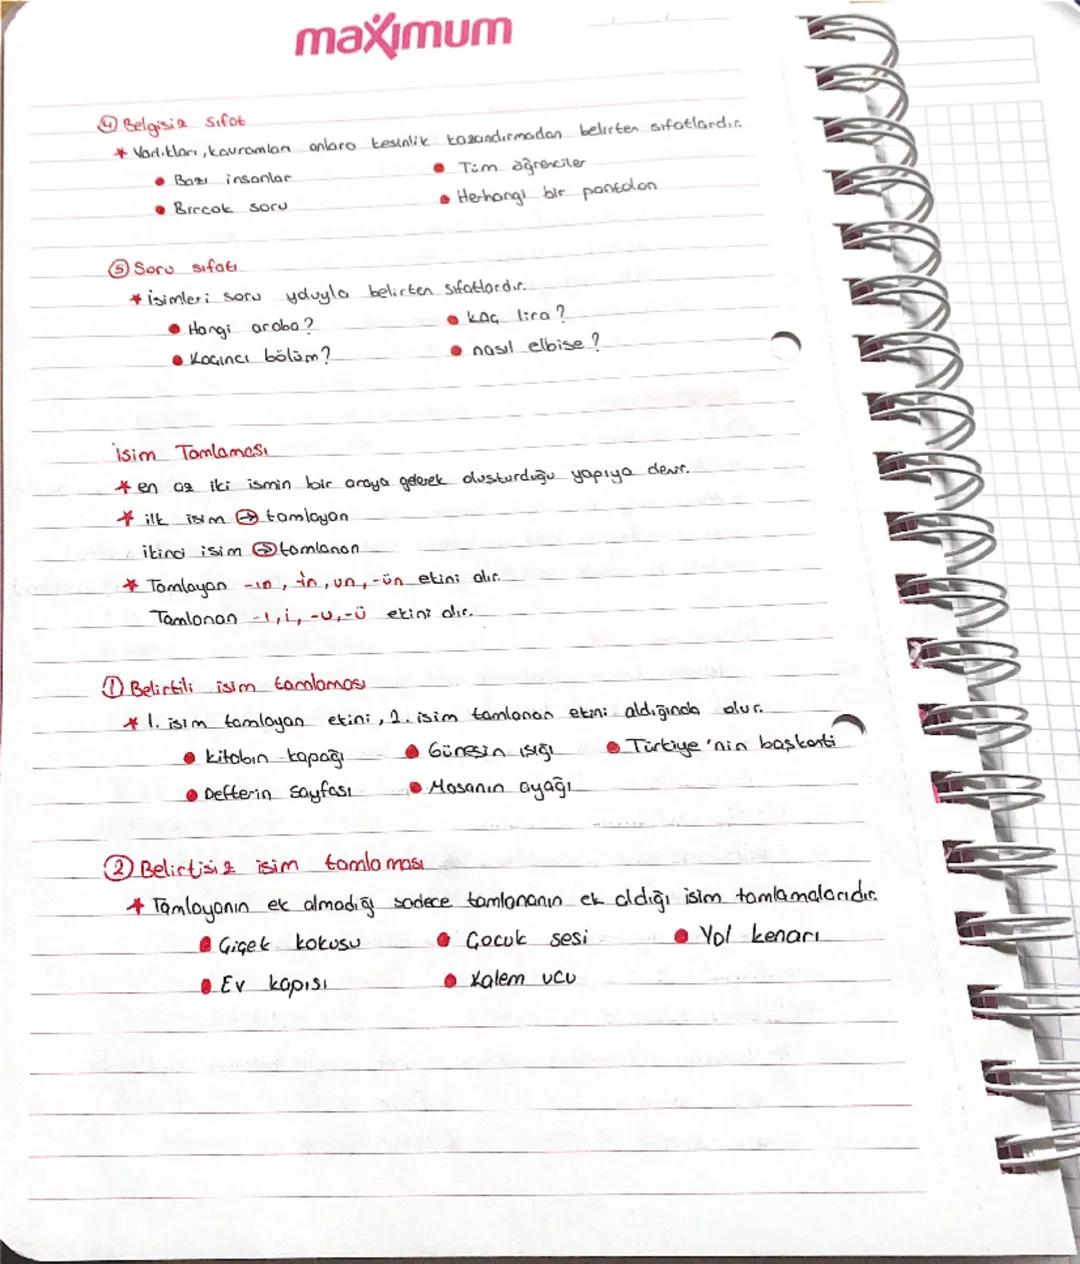 maximum
4 Belgisiz sıfat
* Varlıkları, kavramları onlara kesinlik kazandırmadan belirten sıfatlardır.
• Bazı insanlar • Tüm öğrenciler
• Birçok soru • Herhangi bir pantolon
5 Soru sıfatı
* isimleri soru yoluyla belirten sıfatlardır.
• Hangi araba? • kaç lira?
• Kaçıncı bölüm? • nasıl elbise?
isim Tamlaması
* en az iki ismin bir araya gelerek oluşturduğu yapıya denir.
* ilk isim → tamlayan
ikinci isim → tamlanan
* Tamlayan -ın, -in, un, -ün ekini alır.
Tamlanan -ı, i, -u, -ü ekini alır.
1 Belirtili isim tamlaması
* 1. isim tamlayan ekini, 2. isim tamlanan ekini aldığında olur.
• kitabın kapağı • Güneşin ışığı • Türkiye'nin başkenti
• Defterin sayfası • Masanın ayağı
2 Belirtisiz isim tamlaması
* Tamlayanın ek almadığı sadece tamlananın ek aldığı isim tamlamalarıdır.
• Çiçek kokusu • Çocuk sesi • Yol kenarı
• Ev kapısı • Kalem ucu